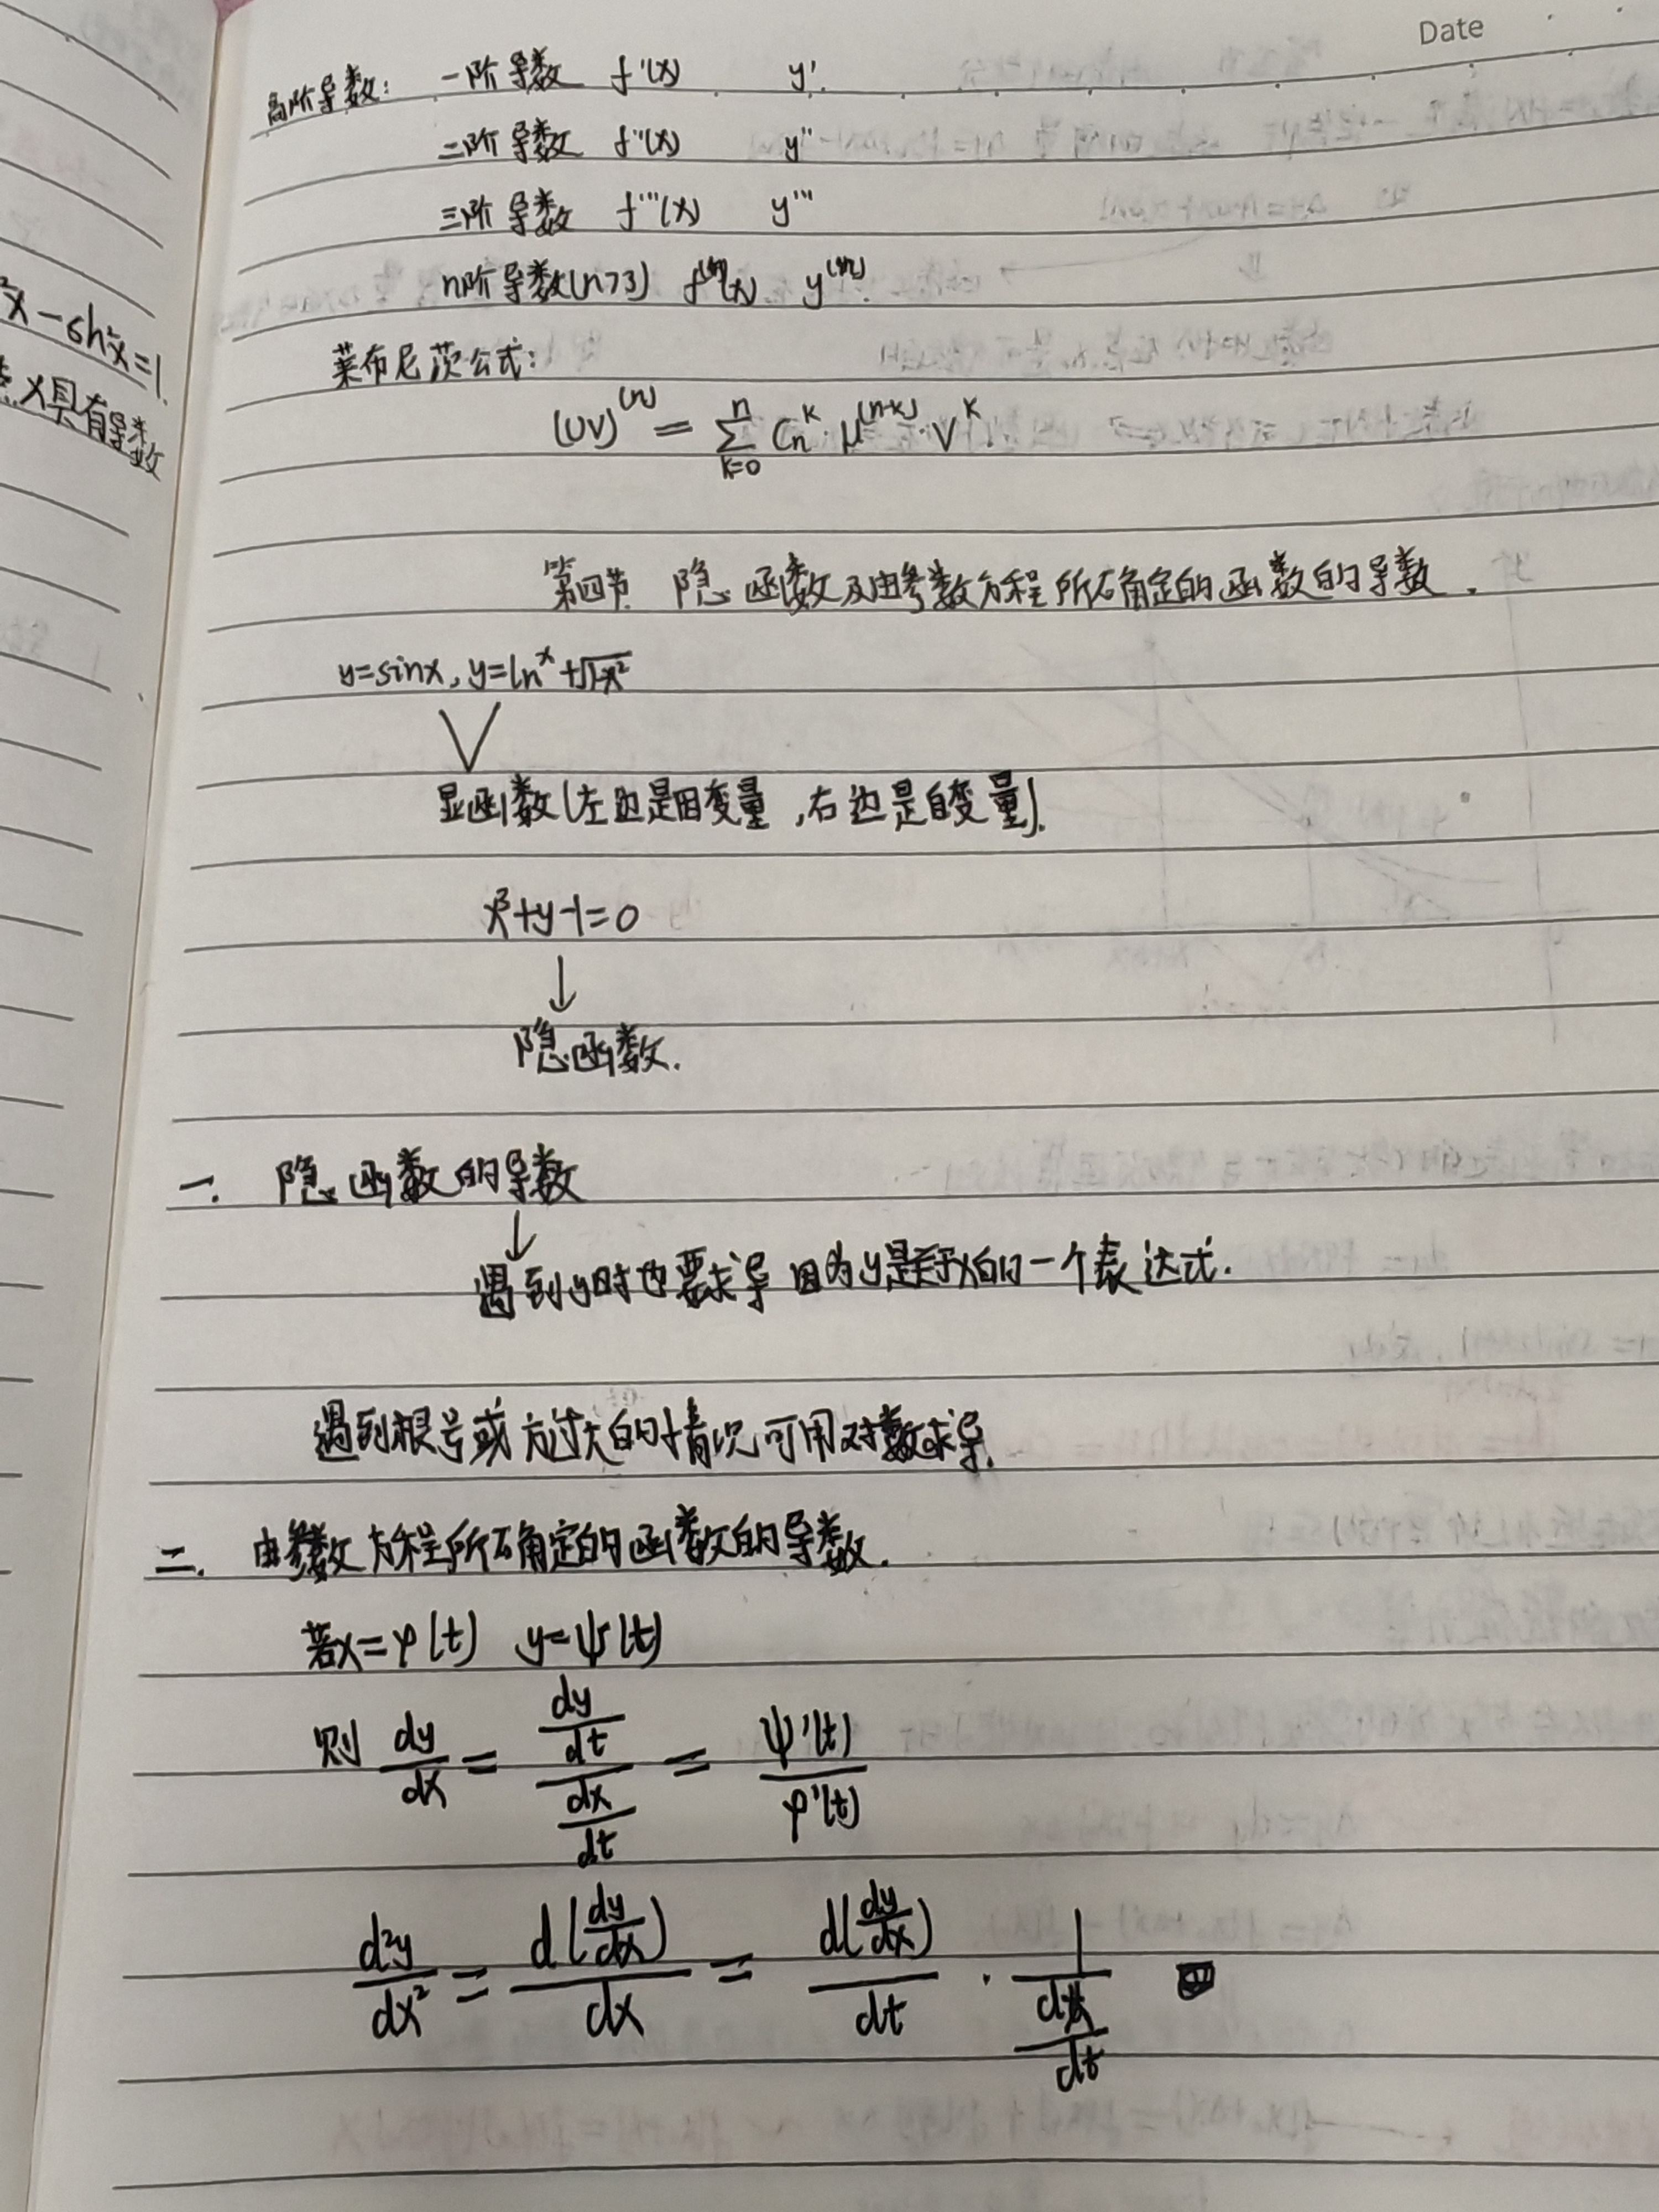 Date
²x-sh²x=1.
x具有导数
高阶导数: 一阶导数 f'(x) y'.
二阶导数 f''(x) y''
三阶导数 f'''(x) y'''
n阶导数(n>3) f⁽ⁿ⁾(x) y⁽ⁿ⁾.
莱布尼茨公式:
(UV)⁽ⁿ⁾ = ∑ₖ₌₀ⁿ Cₙᵏ·μ⁽ⁿ⁻ᵏ⁾·Vᵏ.
第四节. 隐函数及由参数方程所确定的函数的导数.
y=sinx, y=lnˣ+√(1-x²)
显函数(左边是因变量,右边是自变量).
x³+y-1=0
↓
隐函数.
一. 隐函数的导数
↓
遇到y时也要求导 因为y是关于x的一个表达式.
遇到根号或方过大的情况可用对数求导.
二. 由参数方程所确定的函数的导数.
若x=φ(t) y=ψ(t)
则 dy/dx = (dy/dt)/(dx/dt) = ψ'(t)/φ'(t)
d²y/dx² = d(dy/dx)/dx = d(dy/dx)/dt · 1/(dx/dt)